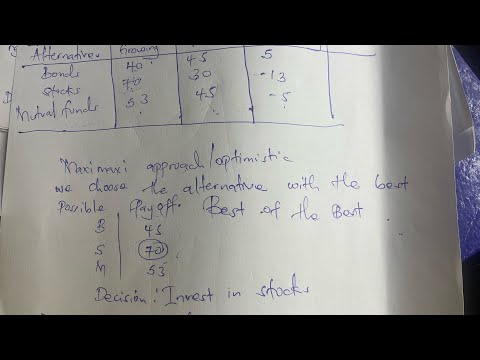 Alternatives Growing
Bonds 40 45 5
Stocks 70 30 -13
Mutual funds 53 45 -5
D
Maximaxi approach/optimistic
we choose the alternative with the best
Possible Payoff. Best of the Best
B 45
S 70
M 53
Decision: Invest in stocks